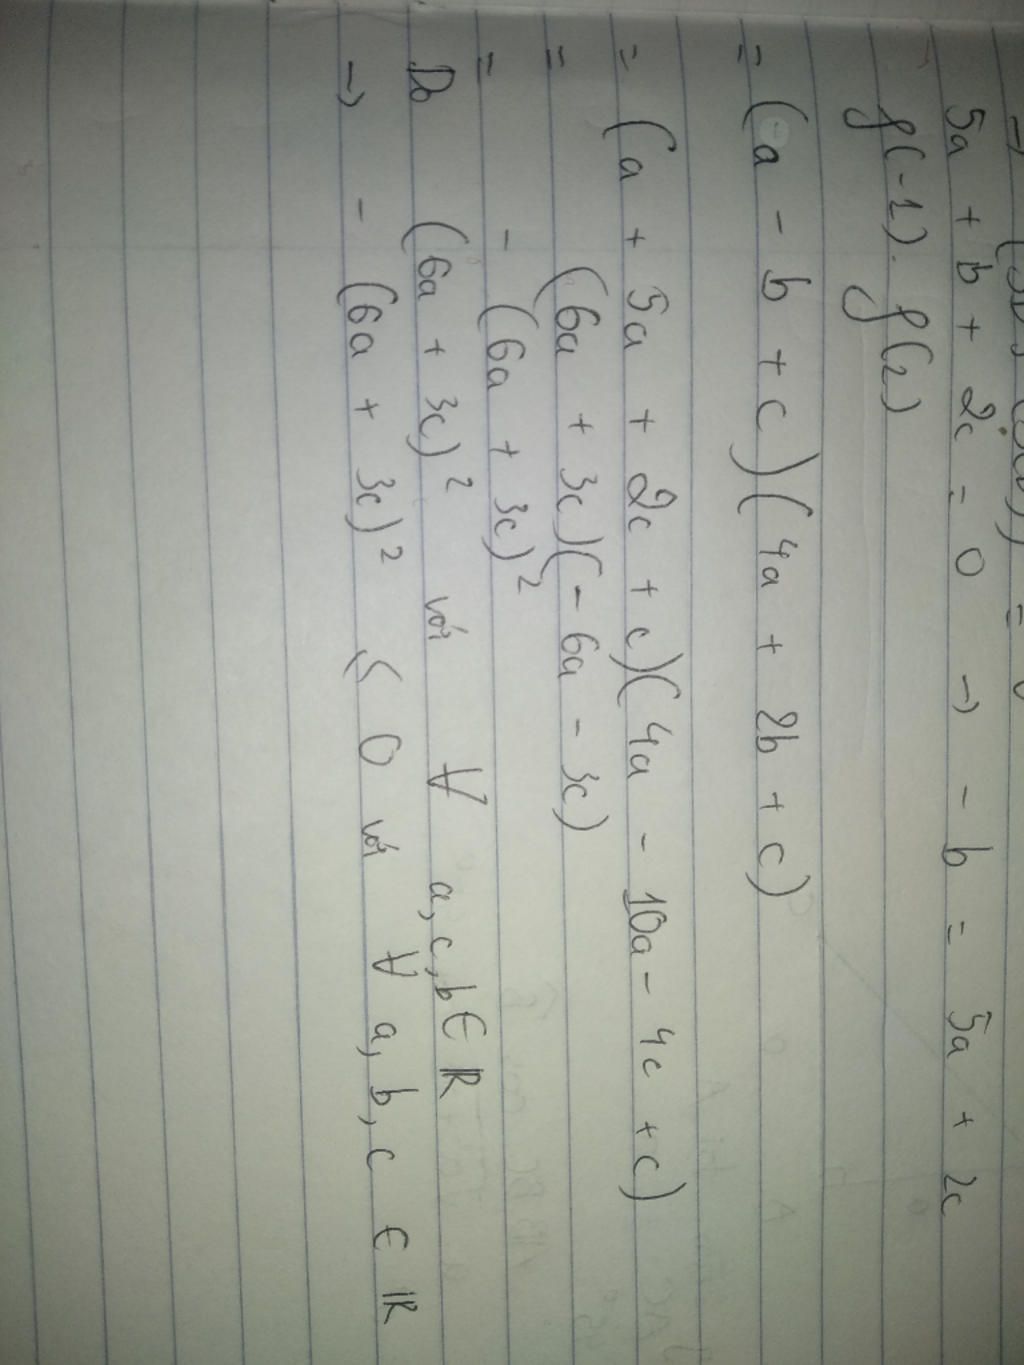 5a + b + 2c = 0 → - b = 5a + 2c
f(-1). f(2)
= (a - b + c)(4a + 2b + c)
= (a + 5a + 2c + c)(4a - 10a - 4c + c)
= (6a + 3c)(- 6a - 3c)
= - (6a + 3c)²
Do (6a + 3c)² với ∀ a, c, b ∈ R
→ - (6a + 3c)² ≤ 0 với ∀ a, b, c ∈ R